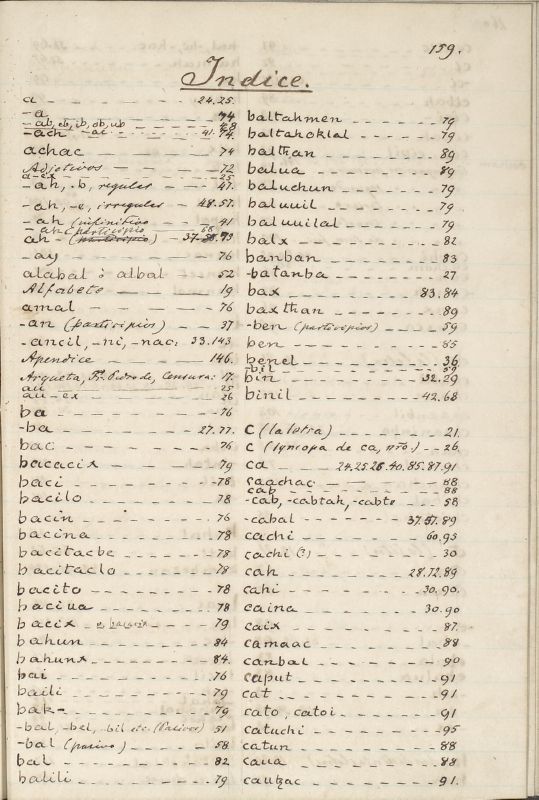 159.
Indice.
a - - - - - - 24.25.
-a - - - - - - 74
-ab, eb, ib, ob, ub - - - 48
-ach, -ac - - - 41. 74
achac - - - - 74
Adjetivos - - - - 72
a-ex - - - - 25
-ah, -b, regules - - 47.
-ah, -e, irregules - 48.57.
-ah (infinitivo - - - 41
-ah (participio - - 58
ah - (participio) - 37.58.73
-ay - - - - - 76
alabal ò albal - - - 52
Alfabeto - - - - 19
amal - - - - - 76
-an (participios) - - - 37
-ancil, -ni, -nac: 33.143
Apendice - - - - 146.
Argueta, Fr. Pedro de, Censura: 17.
au - - - - - 25
au-ex - - - - - 26
ba - - - - - 76
-ba - - - - - 27.77.
bac - - - - - 76
bacacix - - - - 79
baci - - - - - 78
bacilo - - - - - 78
bacin - - - - - 76
bacina - - - - - 78
bacitacbe - - - - 78
bacitaclo - - - - 78
bacito - - - - - 78
baciua - - - - - 78
bacix - - - - 79
bahun - - - - - 84
bahunx - - - - - 84.
bai - - - - - 76
baili - - - - - 79
bak- - - - - - 79
-bal, -bel, -bil etc. (Pasivos) 51
-bal (pasivo) - - - - 58
bal - - - - - 82
balili - - - - - 79
baltahmen - - - - 79
baltahoklal - - - - 79
balthan - - - - 89
balua - - - - - 89
baluchun - - - - 79
baluuil - - - - 79
baluuilal - - - - 79
balx - - - - - 82
banban - - - - - 83
-batanba - - - - 27
bax - - - - - 83.84
baxthan - - - - 89
-ben (participios) - - - 59
ben - - - - - 85
benel - - - - - 36
-bil - - - - - 59
bin - - - - - 32.29
binil - - - - - 42.68
C (la letra) - - - - 21.
C (syncopa de ca, nro.) - - 26.
ca - - - 24.25.26.40.85.87.91
caachac - - - - 88
cab - - - - - 88
-cab, -cabtah, -cabte - - 58
-cabal - - - - 37.57.89
cachi - - - - - 60.95
cachi (?) - - - - 30
cah - - - - - 28.72.89
cahi - - - - - 30.90.
caina - - - - - 30.90
caix - - - - - 87.
camaac - - - - 88
canbal - - - - 90
caput - - - - - 91
cat - - - - - 91
cato, catoi - - - - 91
catuchi - - - - 95
catun - - - - - 88
caua - - - - - 88
cautzac - - - - 91.